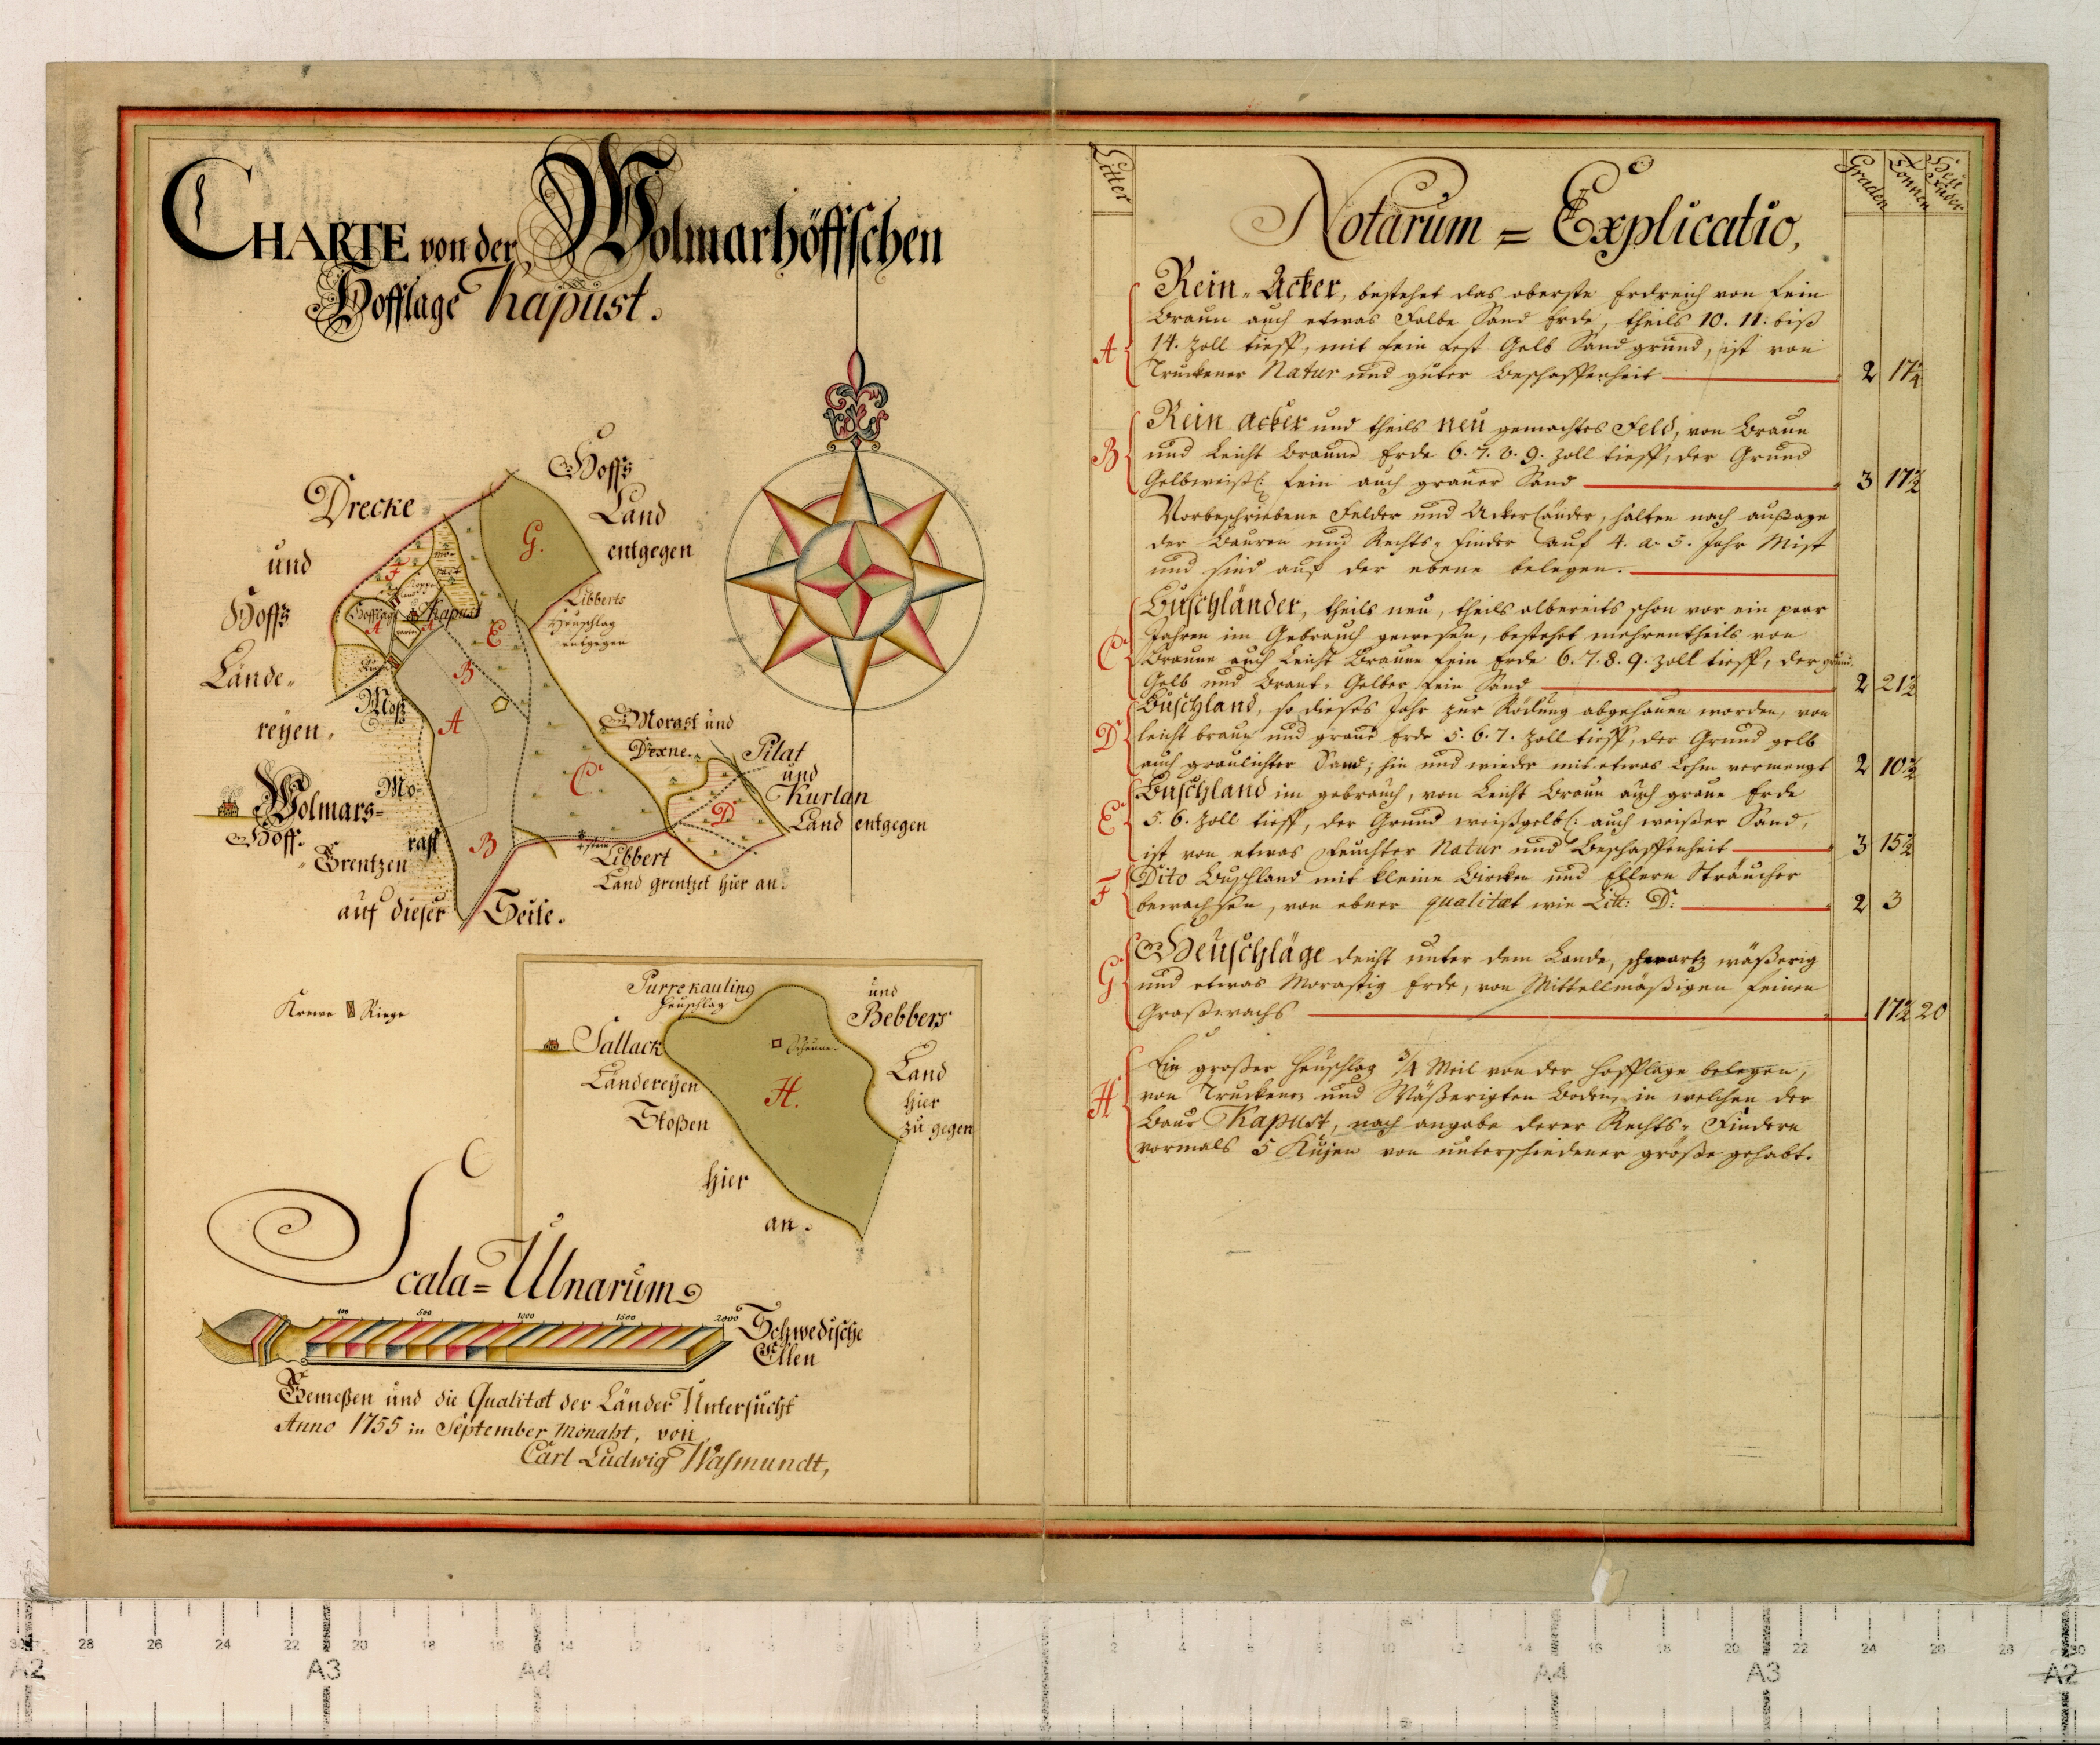 CHARTE von der Wolmarhöffschen
Hofflage Kapust.
Drecke
und
Hoffs
Lände-
reyen.
Hoffs
Land
entgegen
Libberts
Heuschlag
entgegen
G.
F
Hofflage Kapust
A
A
E
B
A
C
B
D
Moß
Mo-
rast
Morast und
Pilat
und
Kurlan
Land entgegen
Wolmars-
Hoff.
Grentzen
auf dieser Seite.
Libbert
Land grentzet hier an.
Krewe Riege
Purrekauling
Heuschlag
und
Bebbers
Land
hier
zu gegen
Sallack
Ländereyen
Stoßen
hier
an.
Scheune.
H.
Scala=Ulnarum
100 500 1000 1500 2000
Schwedische
Ellen
Gemeßen und die Qualitat der Länder Untersucht
Anno 1755 in September Monaht, von
Carl Ludwig Wasmundt,
Litter
Notarum = Explicatio,
Graden
Tonnen
Heu
Fuder
A Rein-Acker, bestehet das oberste Erdreich von fein
braun auch etwas Falbe Sand Erde, theils 10. 11. biß
14. Zoll tieff, mit fein fest Gelb Sand grund, ist von
Truckener Natur und guter beschaffenheit 2 17¼
B Rein acker und theils neu gemachtes Feld, von braun
und Leicht braune Erde 6. 7. 8. 9. Zoll tieff, der Grund
Gelbweißl: fein auch grauer Sand 3 17½
Vorbeschriebene Felder und Ackerländer, halten nach außage
der Bauren und Rechts-finder auf 4. a 5. Jahr Mist
und sind auf der ebene belegen.
C Buschländer, theils neu, theils albereits schon vor ein paar
Jahren im Gebrauch gewesen, bestehet mehrentheils von
Braune auch Leicht Braune fein Erde 6. 7. 8. 9. Zoll tieff, der grund
Gelb und Brant-Gelber fein Sand 2 21½
D Buschland, so dieses Jahr zur Rödung abgehauen worden, von
leicht braun und graue Erde 5. 6. 7. Zoll tieff, der Grund gelb
auch graulichter Sand; hin und wieder mit etwas Lehm vermengt 2 10½
E Buschland im gebrauch, von Leicht braun auch graue Erde
5. 6. Zoll tieff, der Grund weißgelbl: auch weißer Sand,
ist von etwas feuchter Natur und Beschaffenheit 3 15½
F Dito Buschland mit kleine Bircken und Ellern Sträucher
bewachsen, von ebner qualitat wie Litt: D. 2 3
G Heuschläge dicht unter dem Lande, schwartz wäßerig
und etwas Morastig Erde, von Mittellmäßigen feinen
Graßwachs 17½ 20
H Ein großer Heuschlag ¾ Meil von der Hofflage belegen,
von Truckenen und Wäßerigten Boden, in welchen der
Baur Kapust, nach angabe derer Rechts-Findern
vormals 5 Kujen von unterschiedener größe gehabt.
A2 28 26 24 22 A3 20 18 A4 14 2 2 4 6 8 10 12 14 A4 16 18 20 A3 22 24 26 28 A2